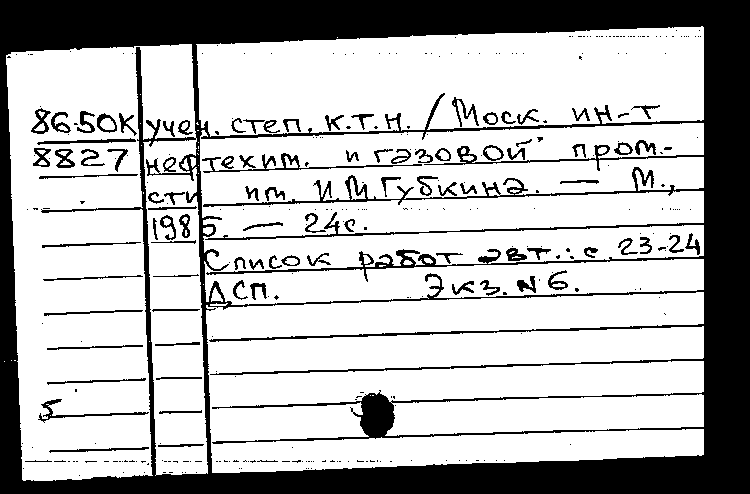 86-50К учен. степ. к.т.н. / Моск. ин-т
8827 нефтехим. и газовой пром-
сти им. И.М.Губкина. — М.,
1985. — 24с.
Список работ авт.: с. 23-24
ДСП. Экз. N 6.
5